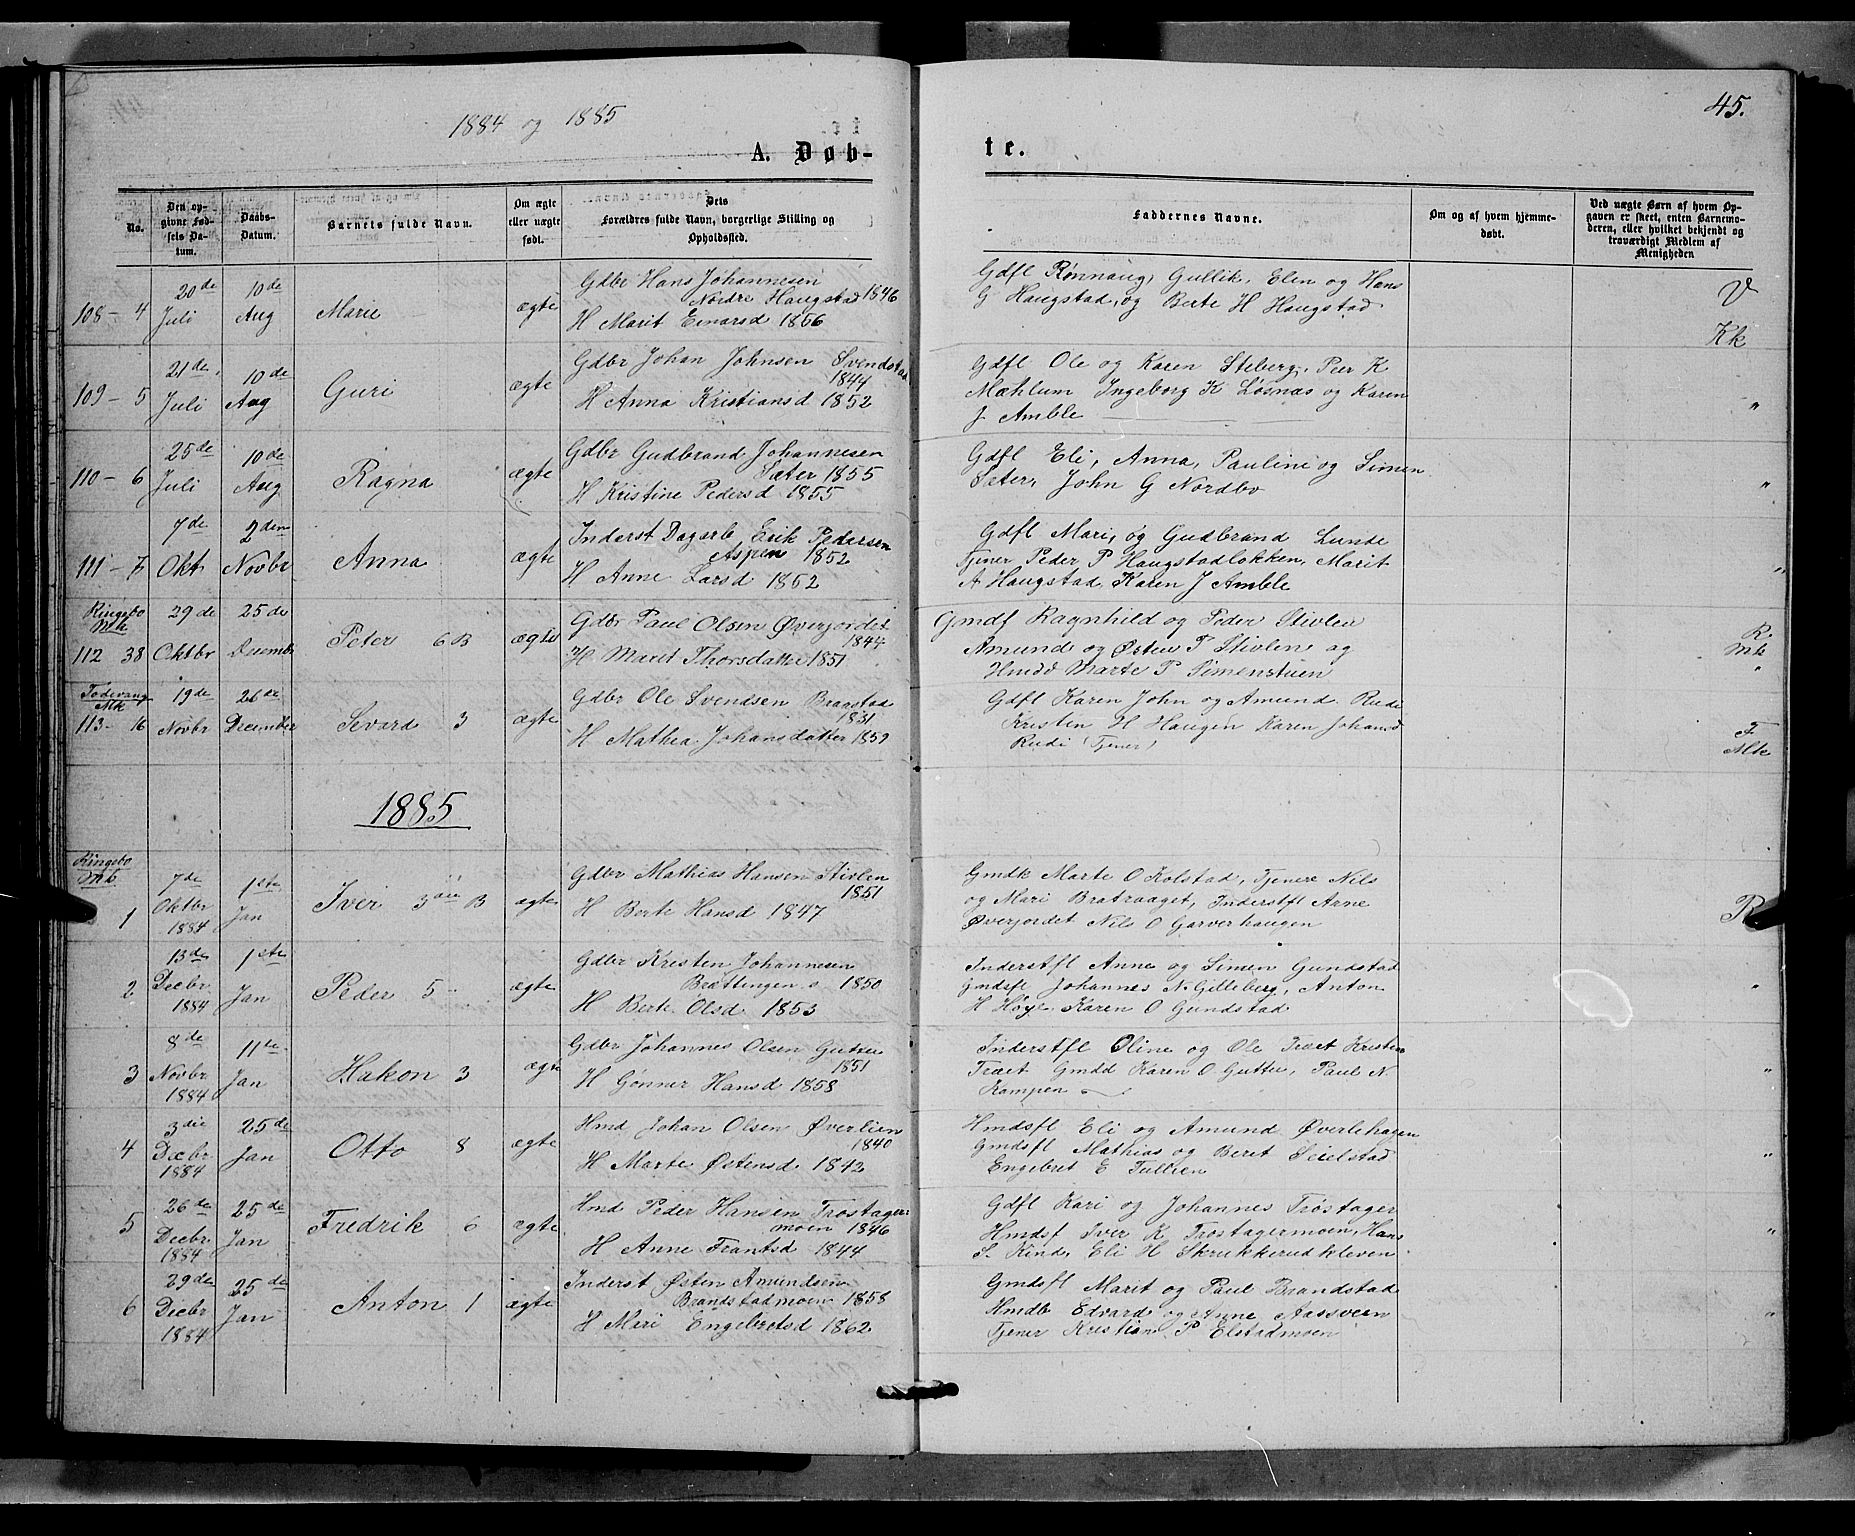 1884 og 1885
45.
A. Døb-
te.
No.
Den op-
givne Fød-
sels Da-
tum.
Daabs-
Datum.
Barnets fulde Navn.
Om ægte
eller uægte
født.
Dets
Forældres fulde Navn, borgerlige Stilling og
Opholdssted.
Faddernes Navne.
Om og af hvem hjemme-
døbt.
Ved uægte Børn af hvem Op-
gaven er skeet, enten Barnemo-
deren, eller hvilket bekjendt og
troværdigt Medlem af
Menigheden
108 - 4 20de Juli 10de Aug Marie ægte
Gdbr Hans Johannesen
Nordre Haugstad 1846
H Marit Einarsd 1856
Gdfl Rønnaug, Gullik, Elen og Hans
G Haugstad, og Berte H Haugstad
V
Kk
109 - 5 21de Juli 10de Aug Guri ægte
Gdbr Johan Johnsen Svendstad
1844
H Anna Kristiansd 1852
Gdfl Ole og Karen Steberg, Peer K
Mæhlum Ingeborg K Løsnæs og Karen
J. Amble
"
110 - 6 25de Juli 10de Aug Ragna ægte
Gdbr Gudbrand Johannesen
Sæter 1855
H Kristine Pedersd 1855
Gdfl Eli, Anna, Pauline og Simen
Sæter, John G Nordbo
"
111 - 7 7de Okt 2den Novbr Anna ægte
Inderst Dagarb Erik Pedersen
Aspen 1852
H Anne Larsd 1852
Gdfl Mari, og Gudbrand Lunde
Tjener Peder P Haugstadløkken, Marit
A Haugstad, Karen J Amble
"
Ringebo
Mk
112 38 29de Oktbr 25de Decembr Peter 6 B ægte
Gdbr Paul Olsen Øverjordet
1844
H Marit Thorsdatter 1851
Gmdf Ragnhild og Peder Stivlen
Amund og Østen P Stivlen og
Hmdd Marte P Simenstuen
R.
Mk
"
Fodvang
Mk
113 - 16 19de Novbr 26de December Sevard 3 ægte
Gdbr Ole Svendsen Bragstad
1831
H Mathea Johansdatter 1859
Gdfl Karen John og Amund Rude
Kristen H Haugen Karen Johansd
Rudi (Tjener)
F
Mk
1885
Ringebo
Mk
1 7de Oktbr 1884 1ste Jan Iver 3die B ægte
Gdbr Mathias Hansen Stivlen
1851
H Berte Hansd 1847
Gmdk Marte O Kolstad, Tjenere Nils
og Mari Bratraaget, Inderstfl Arne
Øverjordet Nils O Garverhaugen
R
2 13de Decbr 1884 1ste Jan Peder 5 ægte
Gdbr Kristen Johannesen
Brættingen 1850
H Berte Olsd 1853
Inderstfl Anne og Simen Gundstad
Gmdsfl Johannes N. Gilleberg, Anton
H Høye Karen O Gundstad
"
3 8de Novbr 1884 11te Jan Hakon 3 ægte
Gdbr Johannes Olsen Gutten
1851
H Gønner Hansd 1858
Inderstfl Oline og Ole Træet Kristen
Træet Gmdd Karen O Gutte, Paul N.
Kampen
"
4 3die Decbr 1884 25de Jan Otto 8 ægte
Hmd Johan Olsen Øverlien
1840
H Marte Østensd 1842
Hmdsfl Eli og Amund Øverlehagen
Gmdsfl Mathias og Beret Seielstad
Engebret E Tullien
"
5 26de Decbr 1884 25de Jan Fredrik 6 ægte
Hmd Peder Hansen Trøstager
moen 1846
H Anne Frantsd 1844
Gdfl Kari og Johannes Trøstager
Hmdsf Iver K Trøstagermoen, Hans
S. Kind, Eli H Skrukkerudkleven
"
6 29de Decbr 1884 25de Jan Anton 1 ægte
Inderst Østen Amundsen
Brandstadmoen 1858
H Mari Engebretsd 1862
Gmdsfl Marit og Paul Brandstad
Hmdb Edvard og Anne Aassveen
Tjener Kristian P Elstadmoen
"